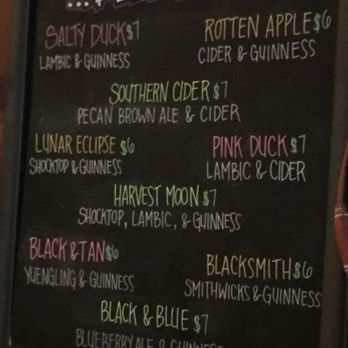 SALTY DUCK $7
LAMBIC & GUINNESS
ROTTEN APPLE $6
CIDER & GUINNESS
SOUTHERN CIDER $7
PECAN BROWN ALE & CIDER
LUNAR ECLIPSE $6
SHOCKTOP & GUINNESS
PINK DUCK $7
LAMBIC & CIDER
HARVEST MOON $7
SHOCKTOP, LAMBIC, & GUINNESS
BLACK & TAN $6
YUENGLING & GUINNESS
BLACKSMITH $6
SMITHWICKS & GUINNESS
BLACK & BLUE $7
BLUEBERRY ALE & GUINNESS